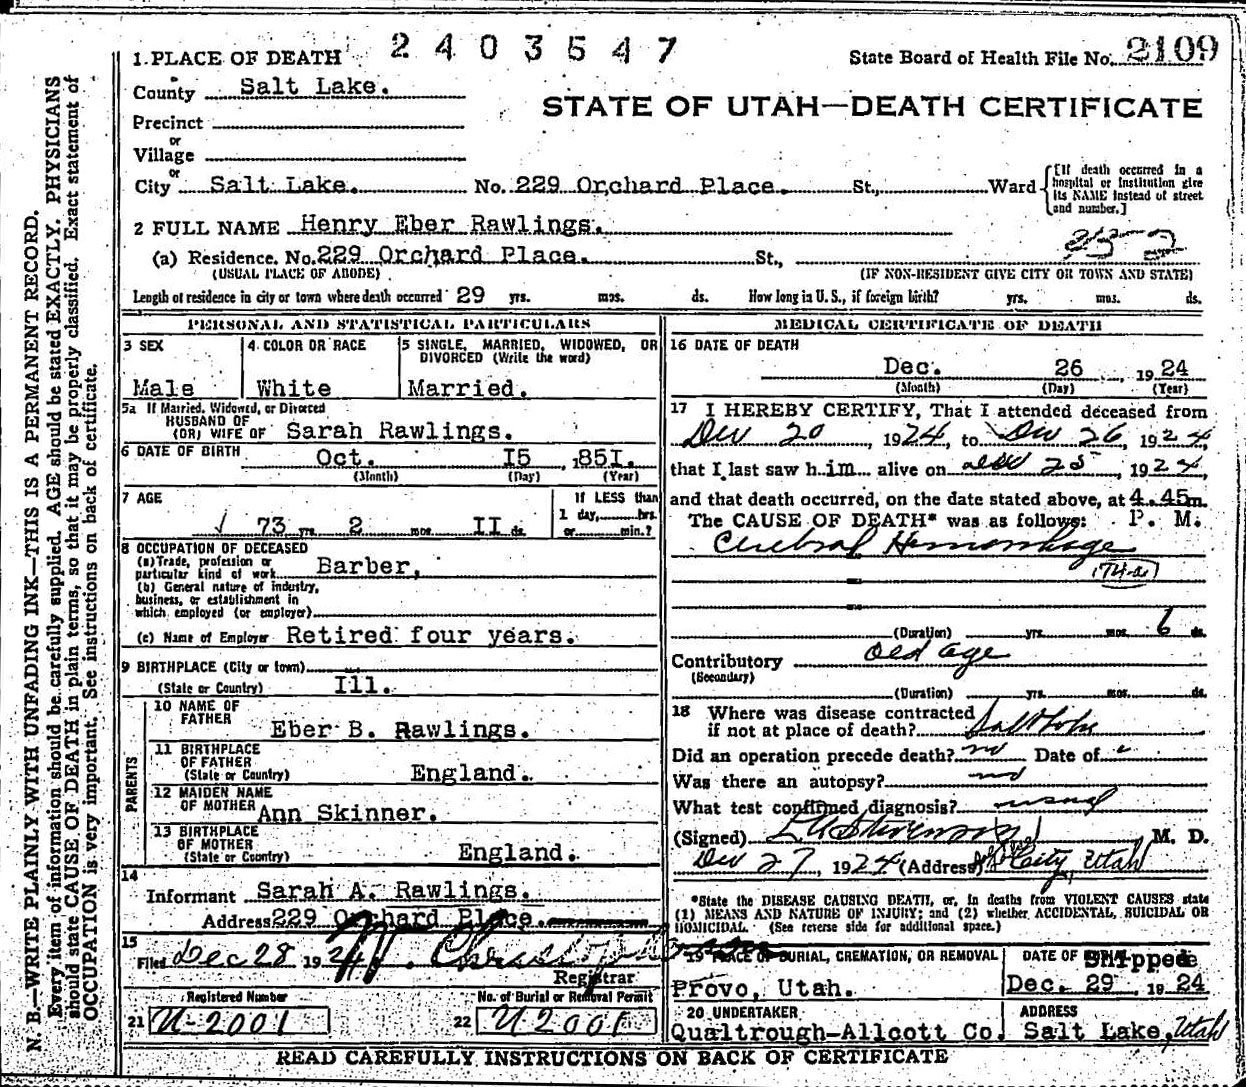 2403547
1 PLACE OF DEATH
State Board of Health File No. 2109
County Salt Lake.
STATE OF UTAH—DEATH CERTIFICATE
Precinct
or
Village
or
City Salt Lake. No. 229 Orchard Place. St., Ward
[If death occurred in a hospital or institution give its NAME instead of street and number.]
2 FULL NAME Henry Eber Rawlings.
(a) Residence. No. 229 Orchard Place. St.,
(USUAL PLACE OF ABODE) (IF NON-RESIDENT GIVE CITY OR TOWN AND STATE)
Length of residence in city or town where death occurred 29 yrs. mos. ds. How long in U. S., if foreign birth? yrs. mos. ds.
PERSONAL AND STATISTICAL PARTICULARS
3 SEX
Male
4 COLOR OR RACE
White
5 SINGLE, MARRIED, WIDOWED, OR DIVORCED (Write the word)
Married.
5a If Married, Widowed, or Divorced
HUSBAND OF
(OR) WIFE OF Sarah Rawlings.
6 DATE OF BIRTH Oct. I5 ,1851.
(Month) (Day) (Year)
7 AGE
73 yrs. 2 mos. II ds.
If LESS than
1 day, hrs.
or min.?
8 OCCUPATION OF DECEASED
(a) Trade, profession or
particular kind of work Barber,
(b) General nature of industry,
business, or establishment in
which employed (or employer)
(c) Name of Employer Retired four years.
9 BIRTHPLACE (City or town)
(State or Country) Ill.
PARENTS
10 NAME OF
FATHER
Eber B. Rawlings.
11 BIRTHPLACE
OF FATHER
(State or Country) England.
12 MAIDEN NAME
OF MOTHER Ann Skinner.
13 BIRTHPLACE
OF MOTHER
(State or Country) England.
14
Informant Sarah A. Rawlings.
Address 229 Orchard Place.
15
Filed Dec 28 1924
Registrar
Registered Number
21 U-2001
No. of Burial or Removal Permit
22 U 2001
MEDICAL CERTIFICATE OF DEATH
16 DATE OF DEATH
Dec. 26 , 1924
(Month) (Day) (Year)
17 I HEREBY CERTIFY, That I attended deceased from
Dec 20, 1924, to Dec 26, 1924,
that I last saw him alive on Dec 25, 1924,
and that death occurred, on the date stated above, at 4.45m.
The CAUSE OF DEATH* was as follows: P. M.
Cerebral Hemorrhage
(Duration) yrs. mos. 6 ds.
Contributory Old Age
(Secondary)
(Duration) yrs. mos. ds.
18 Where was disease contracted
if not at place of death?
Did an operation precede death? no Date of
Was there an autopsy? no
What test confirmed diagnosis? usual
(Signed) M. D.
Dec 27, 1924 (Address) City, Utah
*State the DISEASE CAUSING DEATH, or, in deaths from VIOLENT CAUSES state
(1) MEANS AND NATURE OF INJURY; and (2) whether ACCIDENTAL, SUICIDAL OR
HOMICIDAL. (See reverse side for additional space.)
19 PLACE OF BURIAL, CREMATION, OR REMOVAL
Provo, Utah.
DATE OF Shipped
Dec. 29, 1924
20 UNDERTAKER
Qualtrough-Allcott Co.
ADDRESS
Salt Lake, Utah
READ CAREFULLY INSTRUCTIONS ON BACK OF CERTIFICATE
N. B.—WRITE PLAINLY WITH UNFADING INK—THIS IS A PERMANENT RECORD.
Every item of information should be carefully supplied. AGE should be stated EXACTLY. PHYSICIANS
should state CAUSE OF DEATH in plain terms, so that it may be properly classified. Exact statement of
OCCUPATION is very important. See instructions on back of certificate.